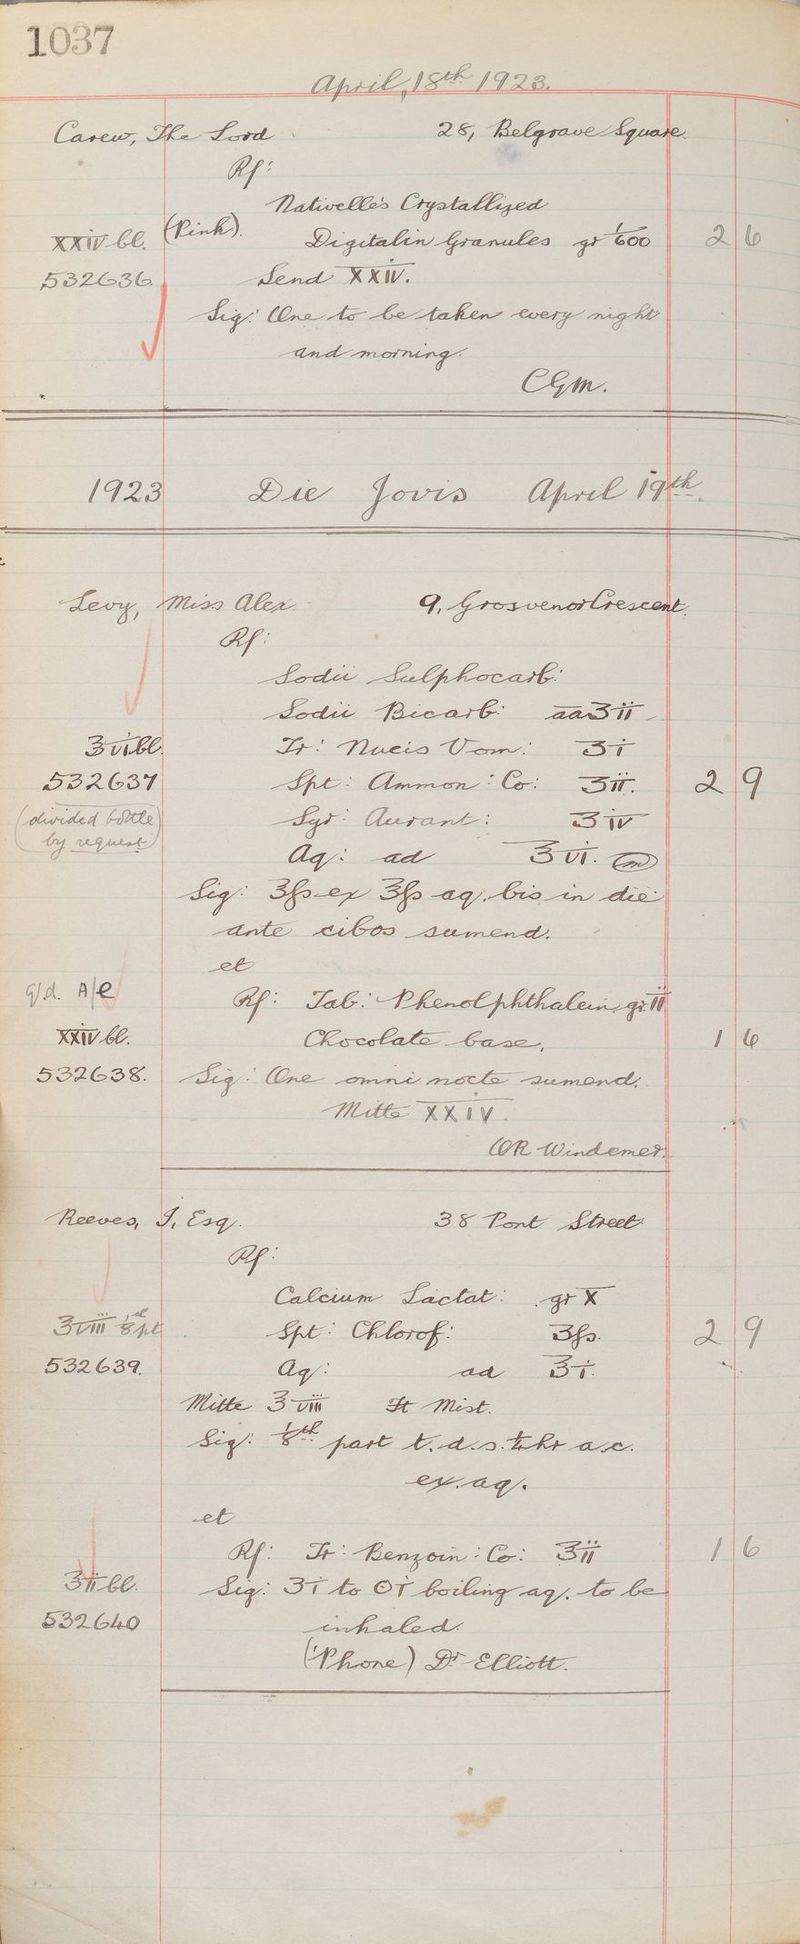 1037
April, 18th 1923.
Carew, The Lord 28, Belgrave Square.
Rf:
Nativelle's Crystallized
XXIV bl. (Pink). Digitalin Granules gr 1/600 2 | 6
532636. Send XXIV.
Sig: One to be taken every night
and morning.
CGM.
1923 Die Jovis April 19th.
Levy, Miss Alex 9, Grosvenor Crescent.
Rf:
Sodii Sulphocarb:
Sodii Bicarb: aa ʒii
℥vi bl. Tr: Nucis Vom: ʒi
532637 Spt: Ammon: Co: ʒiii. 2 | 9
(divided bottle Syr: Aurant: ʒiv
by request) Aq: ad ℥vi. (m)
Sig: ℥fs ex ℥fs aq. bis in die
ante cibos sumend.
et
g/d. A/e Rf: Tab: Phenolphthalein gr. ii
XXIV bl. Chocolate base. 1 | 6
532638. Sig: One omni nocte sumend.
Mitte XXIV.
OR Windemer.
Reeves, J, Esq. 38 Pont Street.
Rf:
Calcium Lactat: gr X
℥viii 1/8 pt Spt: Chlorof: ʒfs. 2 | 9
532639. Aq: ad ℥i.
Mitte ℥viii Ft Mist.
Sig: 1/8th part t.d.s. 1/4 hr a.c.
ex. aq.
et
Rf: Tr: Benzoin: Co: ℥ii 1 | 6
℥ii bl. Sig: ʒi to Oi boiling aq. to be
532640 inhaled.
('Phone) Dr Elliott.